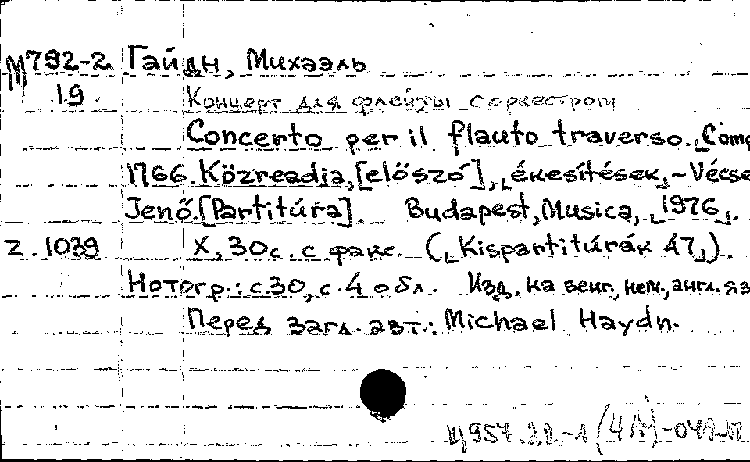 М792-2 Гайдн, Михаэль
19. Концерт для флейты с оркестром
Concerto per il flauto traverso. Comp
1766. Közreadja, [előszó], ékesítések, - Vécse
Jenő. [Partitúra]. Budapest, Musica, 1976.
Z. 1039 X, 30 с. с факс. (Kispartitúrák 47).
Нотогр.: с. 30, с. 4 обл. Изд. на венг., нем., англ. яз
Перед загл. авт.: Michael Haydn.